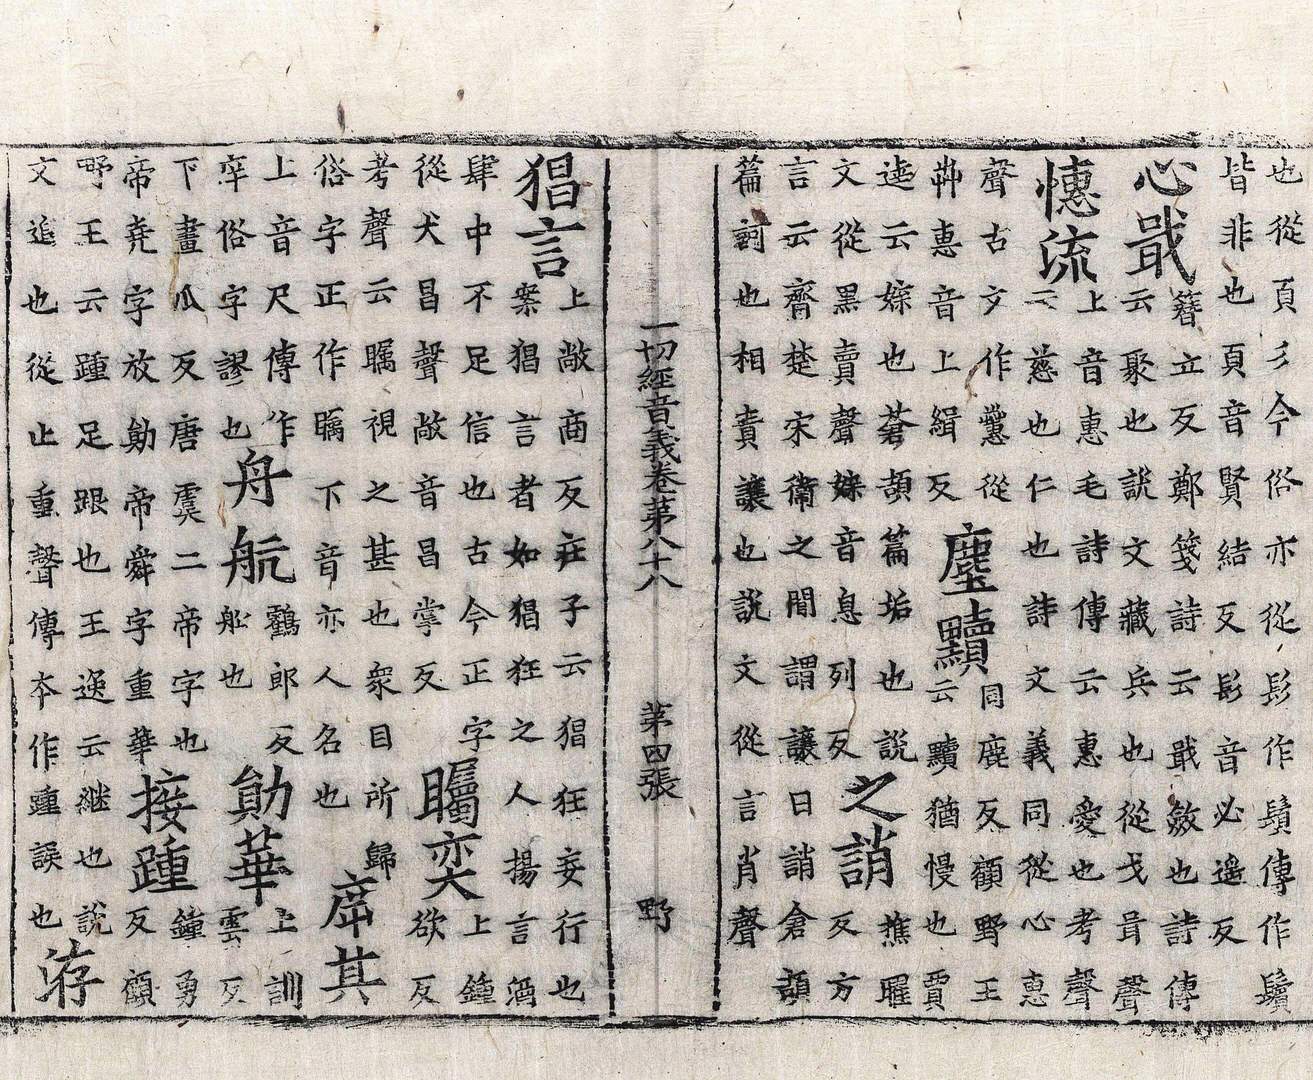 也從頁彡今俗亦從髟作鬚傳作鬢
皆非也頁音賢結反髟音必遙反
心戢簮立反鄭箋詩云戢斂也詩傳
云聚也說文藏兵也從戈咠聲
憓流上音惠毛詩傳云惠愛也考聲
云慈也仁也詩文義同從心惠
聲古文作從
芔惠音上緝反
塵黷同鹿反顧野王
云黷猶慢也賈
逵云媟也蒼頡篇垢也說
文從黑賣聲媟音息列反
之誚樵曜
反方
言云齊楚宋衛之間謂讓曰誚倉頡
篇訶也相責讓也說文從言肖聲
一切經音義卷第八十八 第四張 野
猖言上敞商反莊子云猖狂妄行也
案猖言者如猖狂之人揚言酒
肆中不足信也古今正字
從犬昌聲敞音昌掌反
矚奕上鍾
欲反
考聲云矚視之甚也衆目所歸
俗字正作矚下音亦人名也
席其
上音尺傳作
俗字謬也
舟航鸖郎反
舩也
勛華上訓
雲反
下畫瓜反唐虞二帝字也
帝堯字放勛帝舜字重華
接踵鍾勇
反顧
野王云踵足跟也王逸云継也說
文追也從止重聲傳本作踵誤也
洊